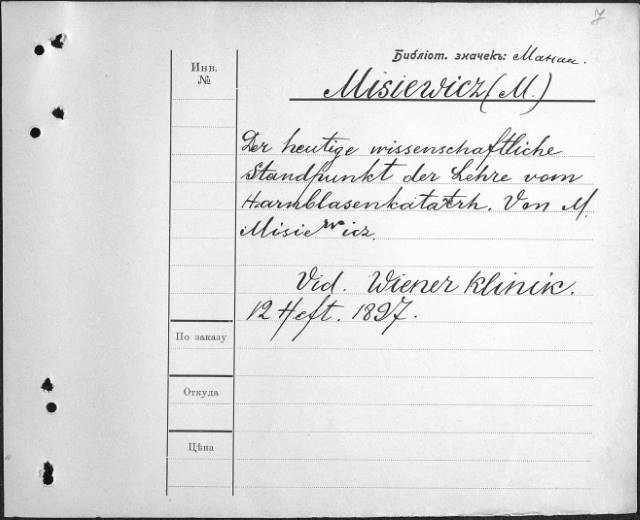 Библіот. значекъ: Манас.
Инв.
№
Misiewicz (M.)
Der heutige wissenschaftliche
Standpunkt der Lehre vom
Harnblasenkatarrh. Von M.
Misiewicz.
Vid. Wiener Klinik.
12 Heft. 1897.
По заказу
Откуда
Цѣна